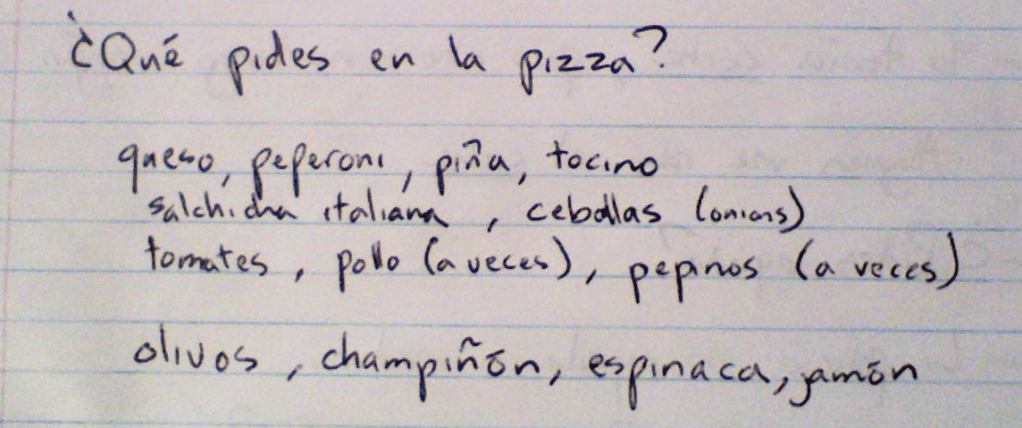 ¿Qué pides en la pizza?
queso, peperoni, piña, tocino
salchicha italiana, cebollas (onions)
tomates, pollo (a veces), pepinos (a veces)
olivos, champiñón, espinaca, jamón